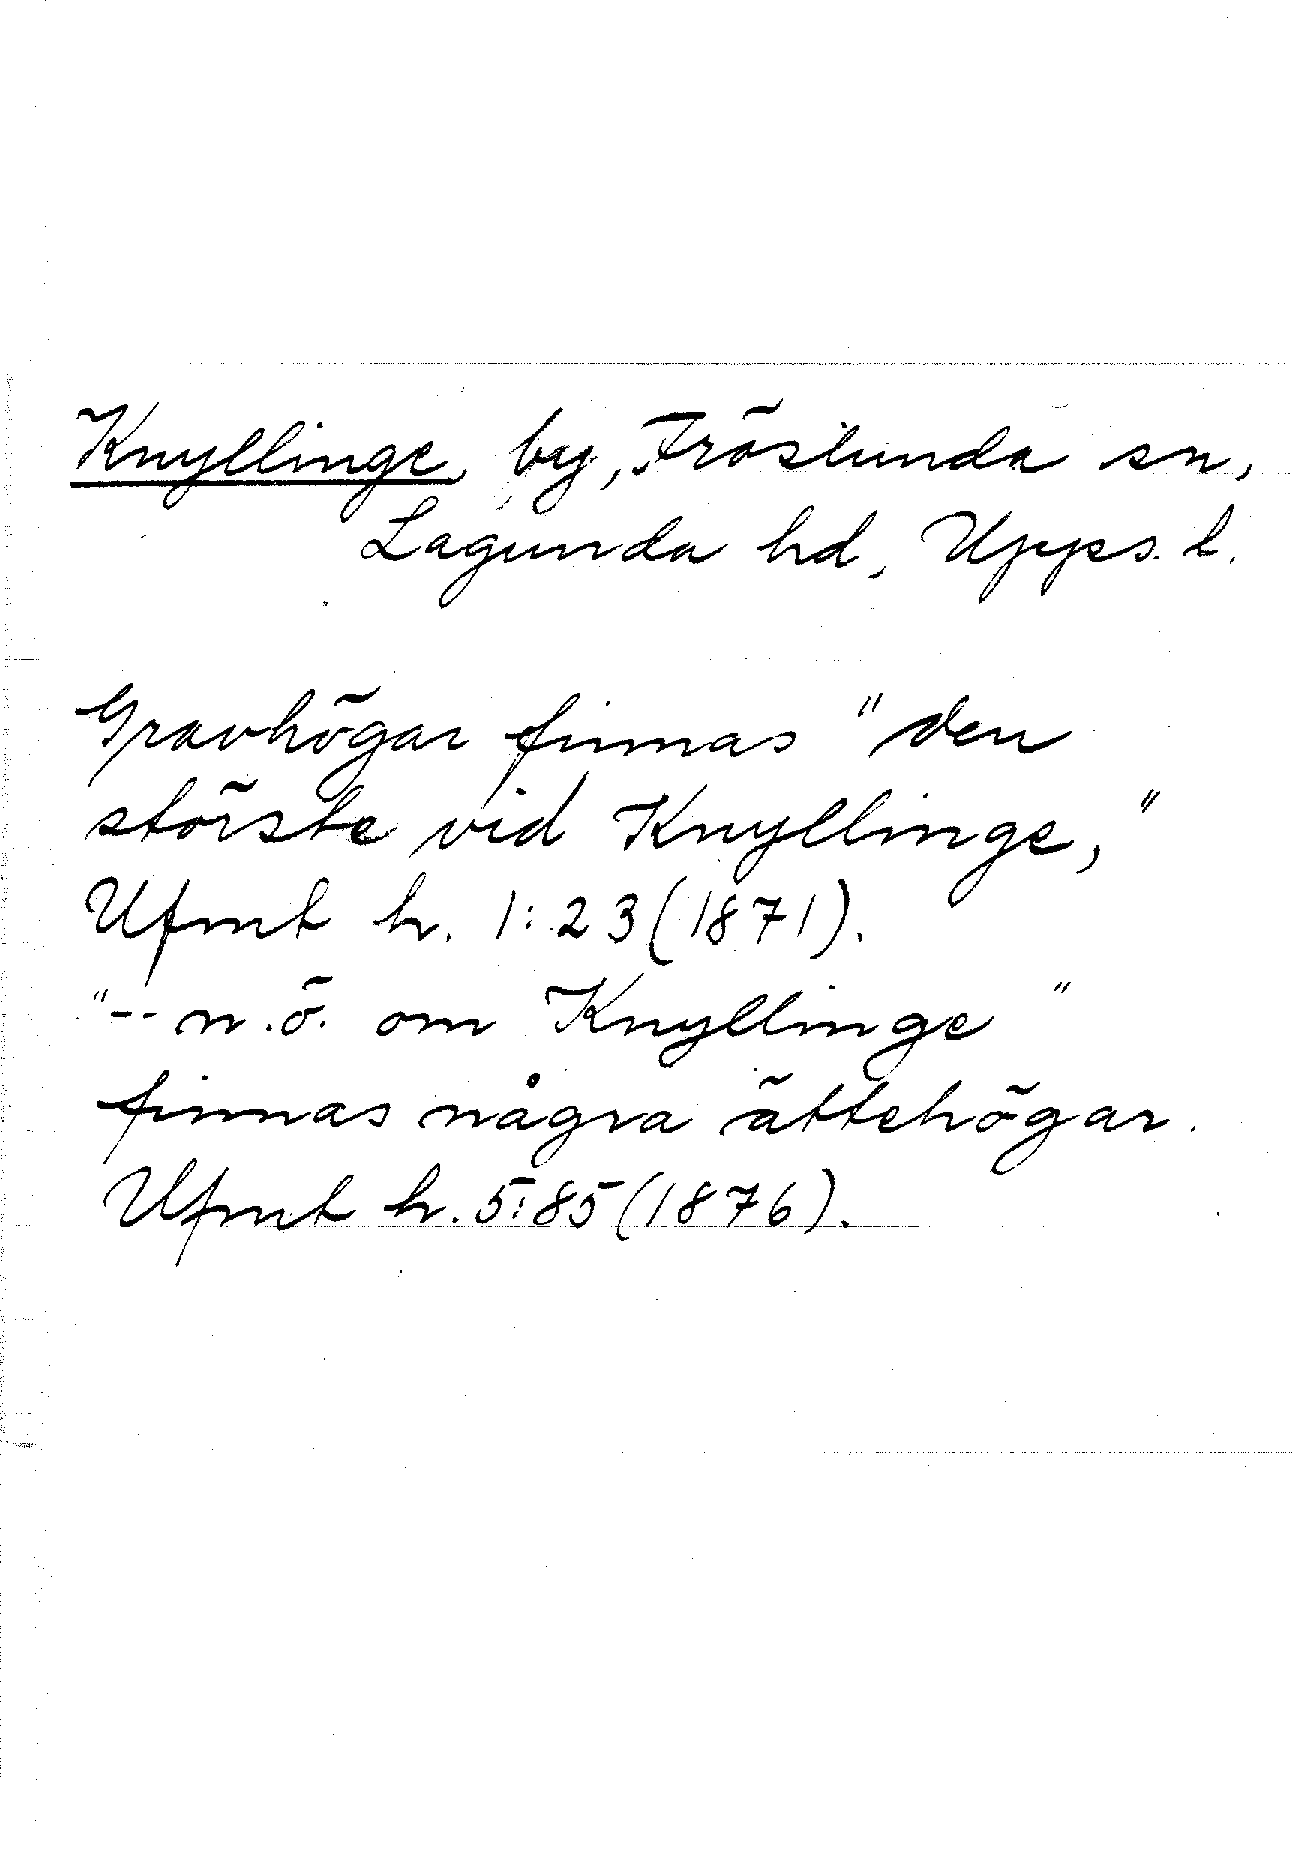 Knyllinge, by, Fröslunda sn,
Lagunda hd, Upps. l.
Gravhögar finnas "den
störste vid Knyllinge,"
Ufmt h. 1:23 (1871).
"-- n.ö. om Knyllinge"
finnas några ättehögar.
Ufmt h. 5:85 (1876).